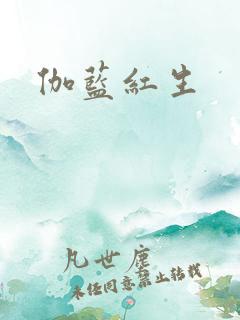 伽藍紅生
凡世塵
未经同意禁止转载